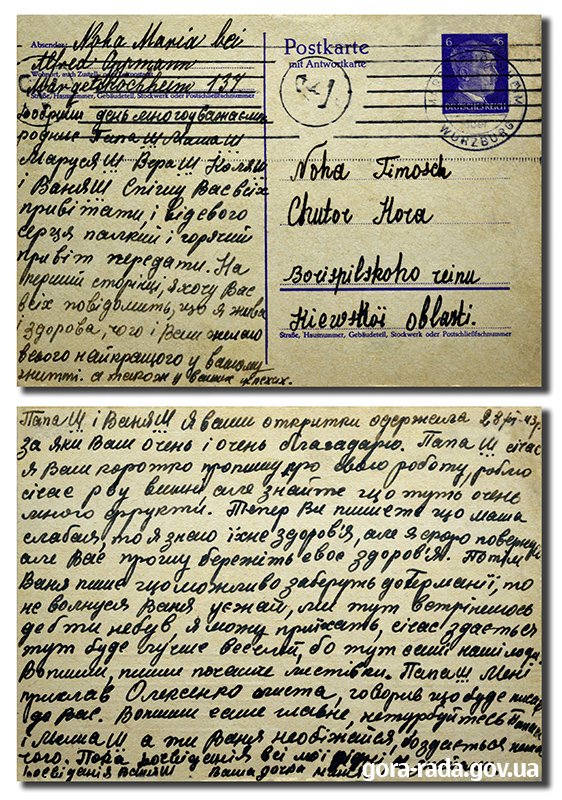 Absender: Noha Maria bei
Alfred Ohrmann
Wohnort, auch Zustell- oder Leitpostamt
Margetshöchheim 134
Straße, Hausnummer, Gebäudeteil, Stockwerk oder Postschließfachnummer
Добрий день многоуважаємі
родние Папа!!! Маша!!!
Маруся!!! Вєра!!! Коля!!!
і Ваня!!! Спішу Вас всіх
привітати, і від свого
серця палкий і горячий
привіт передати. На
першій сторінці, я хочу Вас
всіх повідомить, що я жива
і здорова, чого і Вам желаю
всього найкращого у вашому
житті. а також у ваших успехих.
Postkarte
mit Antwortkarte
6 6
DEUTSCHES REICH
WÜRZBURG
Noha Timosch
Chutor Hora
Borispilskoho reinu
Kiewskoi oblasti.
Straße, Hausnummer, Gebäudeteil, Stockwerk oder Postschließfachnummer
Папа!!! і Ваня!!! Я ваши откритки одержала 28/VI-43р.
за яки Вам очень і очень благадарю. Папа!!! січас
я Вам коротко пропишу про свою роботу, роблю
січас рву вишні але знайте що тут очень
много фрукти. Тепер Ви пишете що маша
слабая, то я знаю їхнє здоров'я, але я скоро повернусь
але Вас прошу бережіть своє здоров'я. Потім
Ваня пише що можливо заберуть до Германії, то
не волнуйся Ваня уєзжай, ми тут встрінимось
де б ти небув, я можу приїхать, січас здається
тут буде лучше веселей, бо тут самі наші люди.
Вопшим, пишіть почаще листівки. Папа!!! Мені
прислав Олексенко листа, говорив що буде писать
до Вас. Вопшим саме главне, нетурбуйтесь Папа!!!
і Маша!!! а ти Ваня необіжайся,
чого. Пока досвіданія всі мої рідні
Досвіданія Ваня!!! Ваша дочка
gora-rada.gov.ua